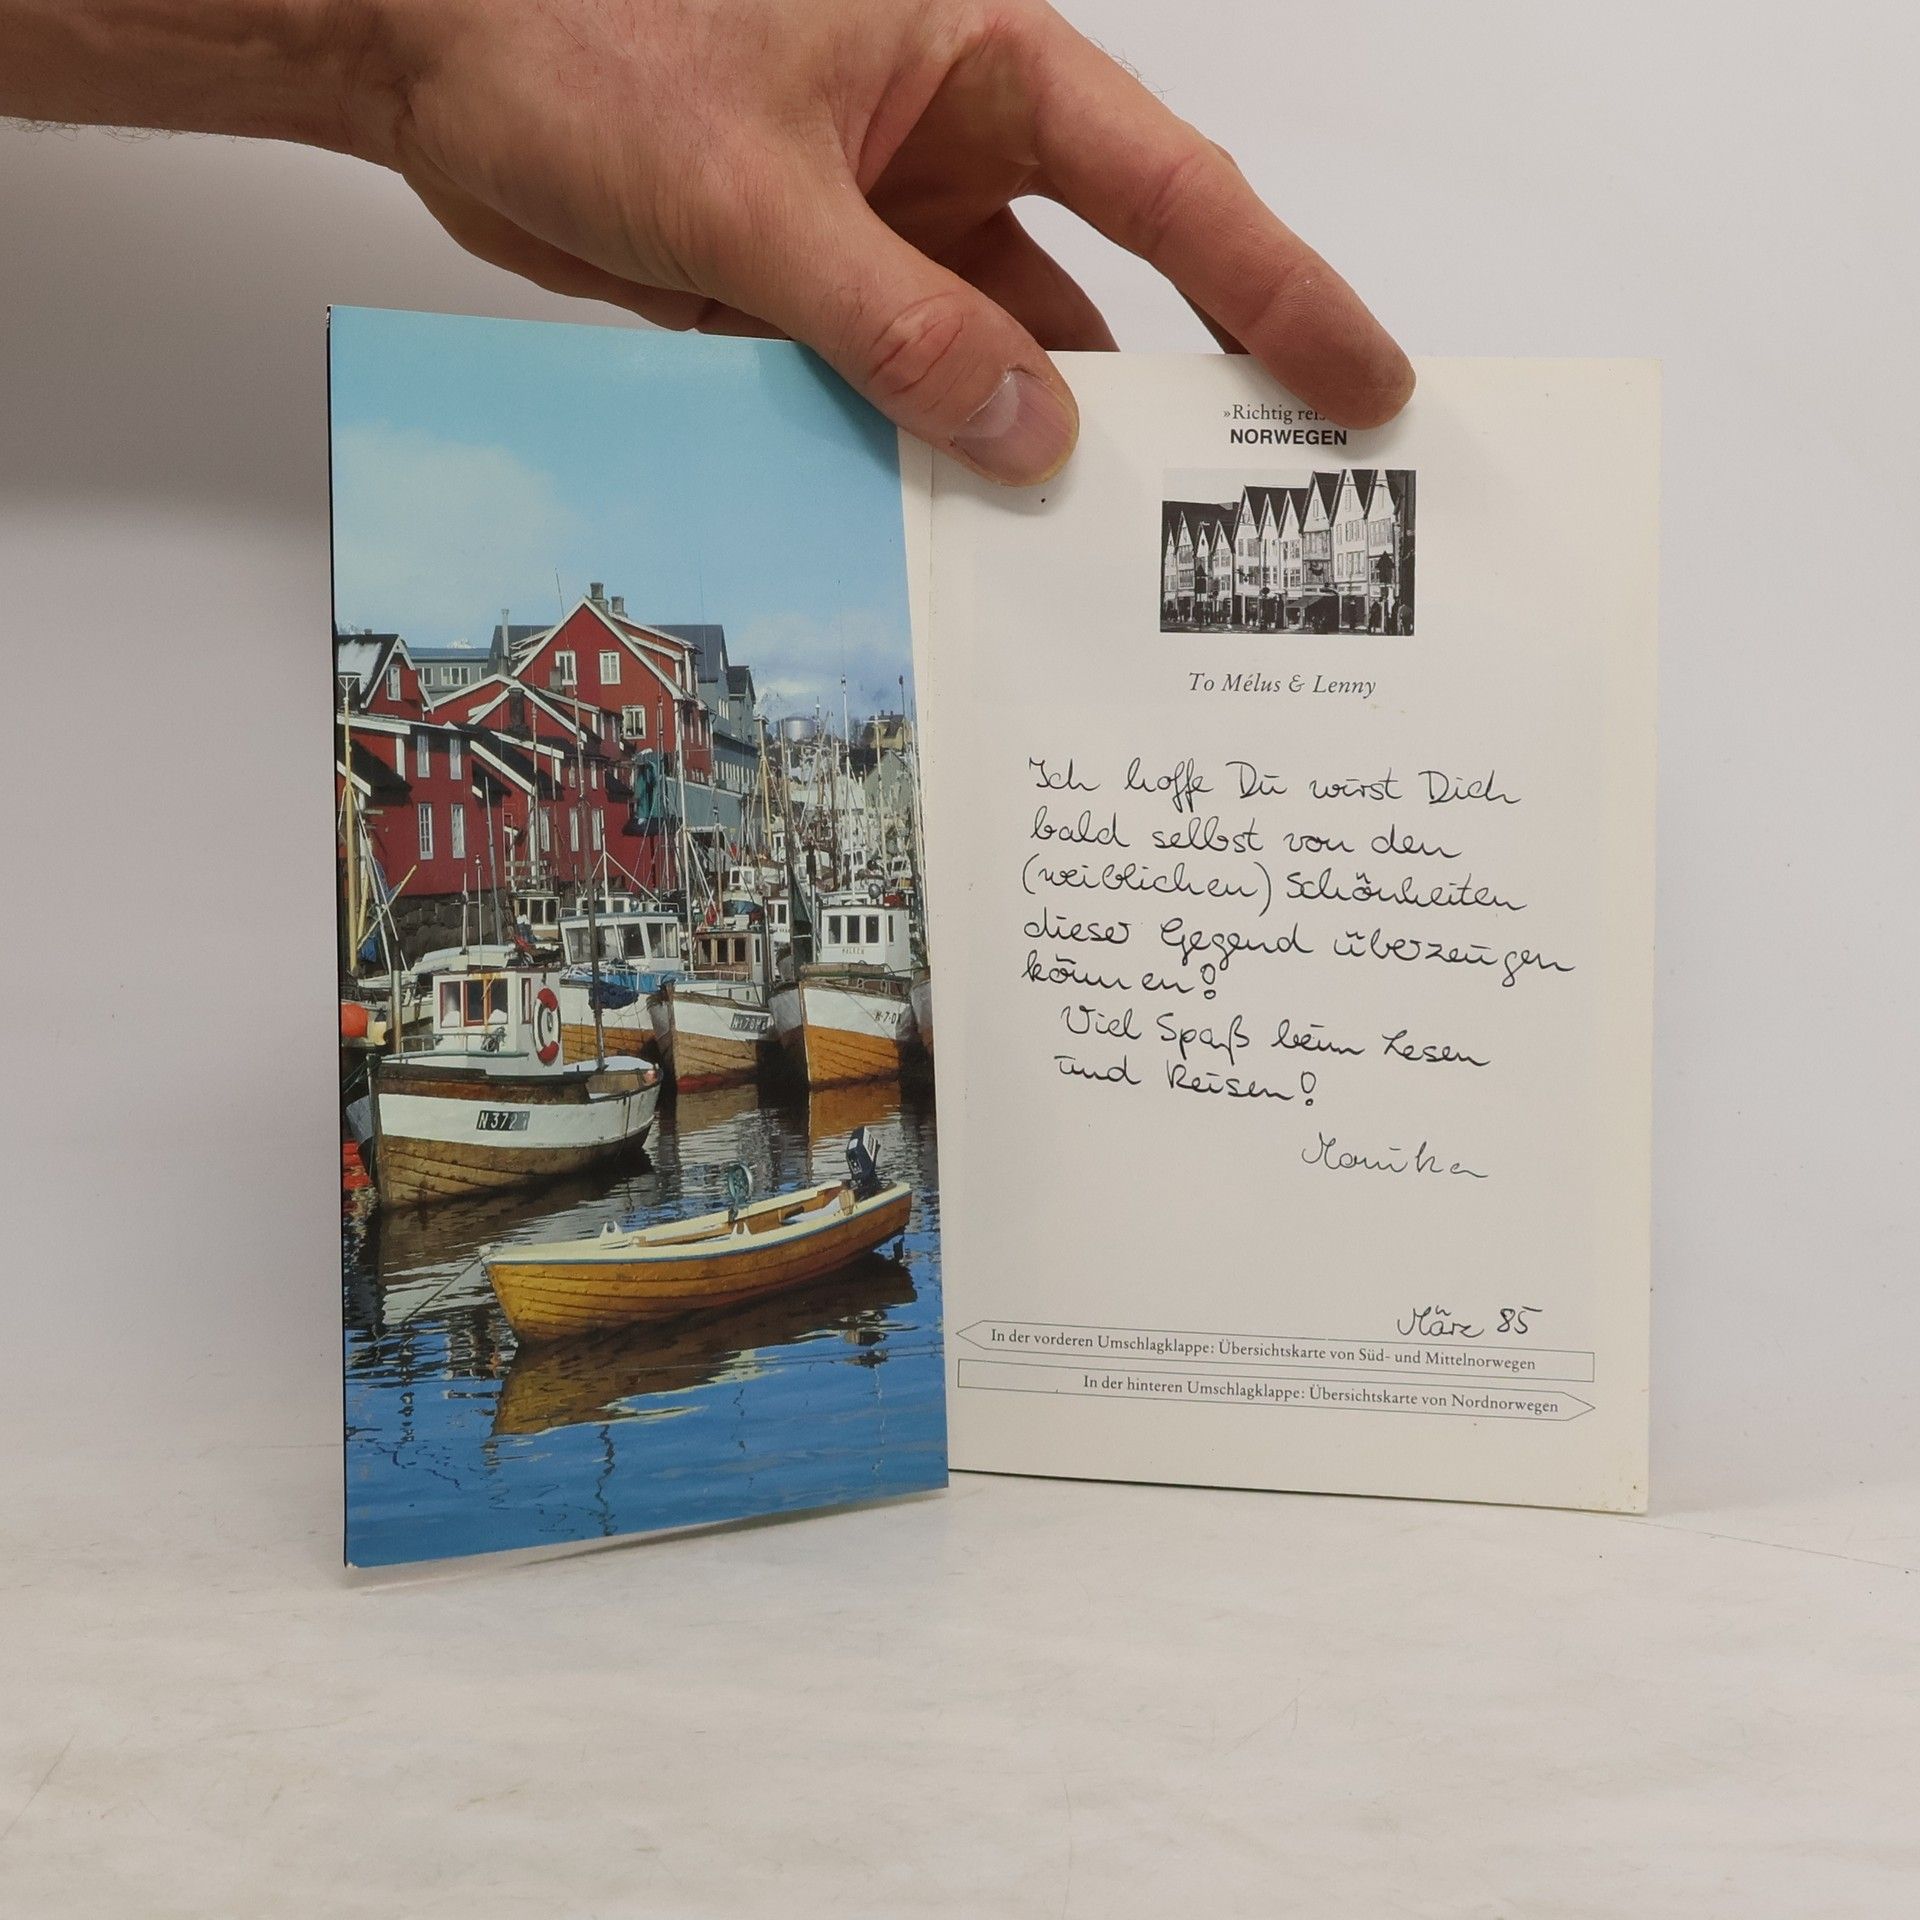 »Richtig
NORWEGEN
To Mélus & Lenny
Ich hoffe Du wirst Dich
bald selbst von den
(weiblichen) Schönheiten
dieser Gegend überzeugen
können!
Viel Spaß beim Lesen
und Reisen!
Monika
März 85
In der vorderen Umschlagklappe: Übersichtskarte von Süd- und Mittelnorwegen
In der hinteren Umschlagklappe: Übersichtskarte von Nordnorwegen